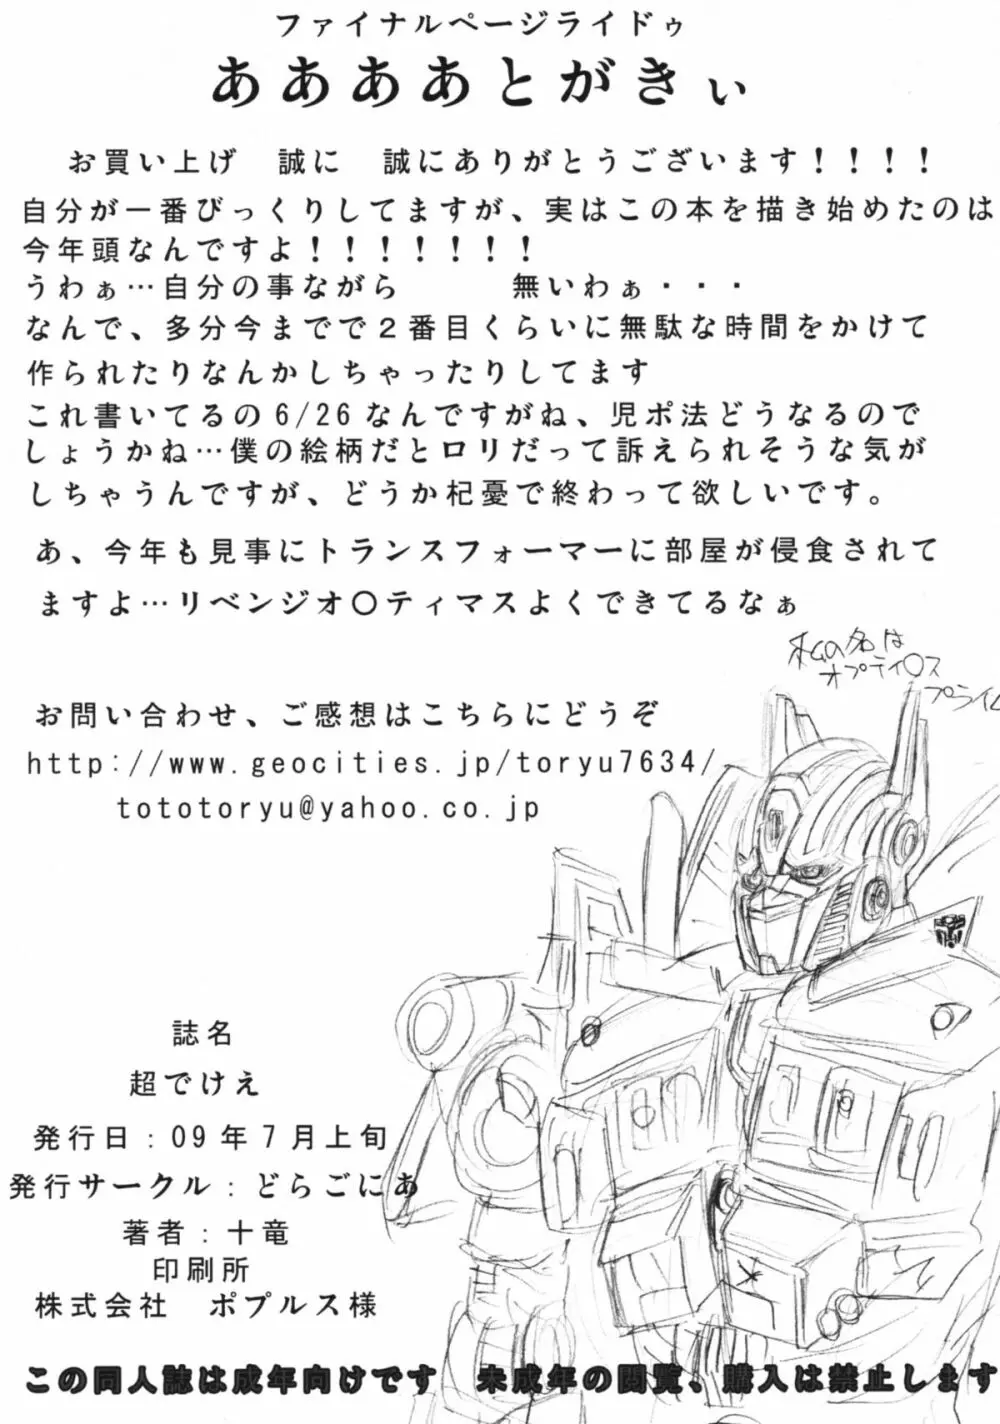 ファイナルページライドゥ
ああああとがきぃ
お買い上げ　誠に　誠にありがとうございます！！！！
自分が一番びっくりしてますが、実はこの本を描き始めたのは
今年頭なんですよ！！！！！！！
うわぁ…自分の事ながら　　　無いわぁ・・・
なんで、多分今までで２番目くらいに無駄な時間をかけて
作られたりなんかしちゃったりしてます
これ書いてるの6/26なんですがね、児ポ法どうなるので
しょうかね…僕の絵柄だとロリだって訴えられそうな気が
しちゃうんですが、どうか杞憂で終わって欲しいです。
あ、今年も見事にトランスフォーマーに部屋が侵食されて
ますよ…リベンジオ〇ティマスよくできてるなぁ
私の名は
オプティ〇ス
プライム
お問い合わせ、ご感想はこちらにどうぞ
http://www.geocities.jp/toryu7634/
tototoryu@yahoo.co.jp
誌名
超でけえ
発行日：09年7月上旬
発行サークル：どらごにあ
著者：十竜
印刷所
株式会社　ポプルス様
この同人誌は成年向けです　未成年の閲覧、購入は禁止します